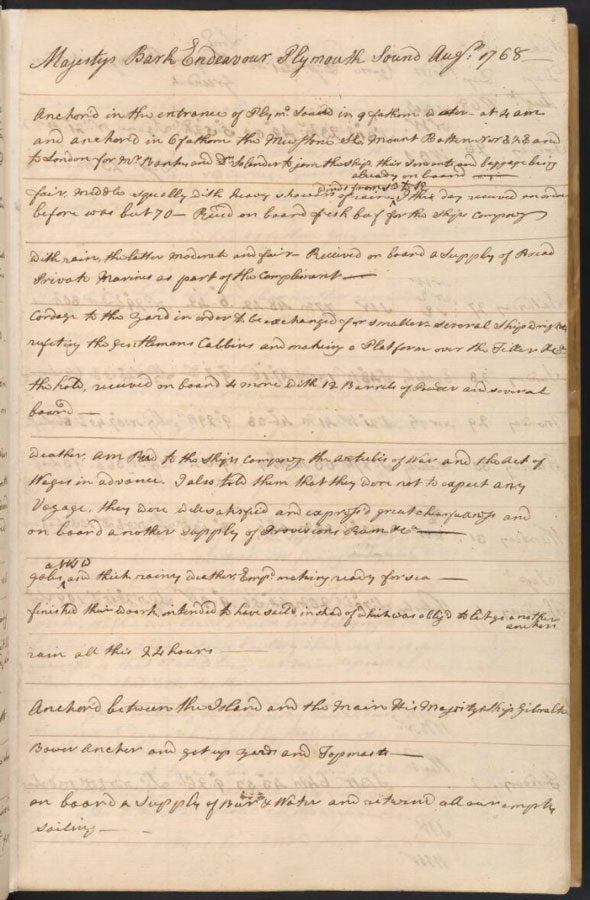 Majestys Bark Endeavour Plymouth Sound Augst 1768
Anchor'd in the entrance of Plymo Sound in 9 fathom water at 4 am
and anchor'd in 6 fathom the Mewstone SE Mount Batten NNE½E and
to London for Mr Banks and Dr Solander to join the ship, their Servants and baggage being
already on board
fair, middle squally with heavy showers of rain, I this day received an order
Winds from SW to SE
before was but 70 — Recd on board fresh beef for the Ships Company
With rain, the latter moderate and fair Received on board a Supply of Bread
Private Marines as part of the Compliment
Cordage to the yard in order to be exchanged for smaller several Shipwrights
refiting the gentlemans Cabbins and making a Platform over the Tiller &ca
the hold, received on board 4 more with 12 Barrels of Powder and several
board
Weather, am Read to the Ships Company the Articles of War and the Act of
Wages in advance I also told them that they were not to expect any
Voyage, they were well satisfied and express'd great chearfullness and
on board another Supply of Provisions Rum &ca
at SW
gales, and thick rainy weather, Empd making ready for sea
finished their work, intended to have sail'd instead of which was oblig'd to let go another
anchor
rain all this 24 hours
Anchor'd between the Island and the Main His Majestys Ship Gibralter
Bower Ancher and got up yards and Topmasts
on board a Supply of Beer & Water and return'd all our empty
sailing